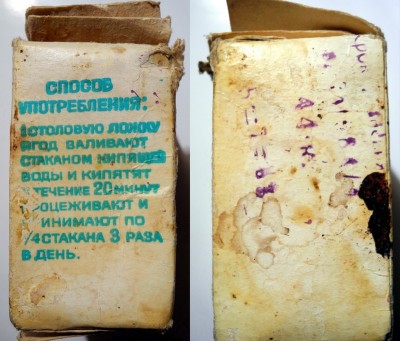 СПОСОБ
УПОТРЕБЛЕНИЯ:
1 СТОЛОВУЮ ЛОЖКУ
ЯГОД ВАЛИВАЮТ
СТАКАНОМ КИПЯЩЕЙ
ВОДЫ И КИПЯТЯТ
ТЕЧЕНИЕ 20 МИНУТ
ОЦЕЖИВАЮТ И
ИНИМАЮТ ПО
1/4 СТАКАНА 3 РАЗА
В ДЕНЬ.